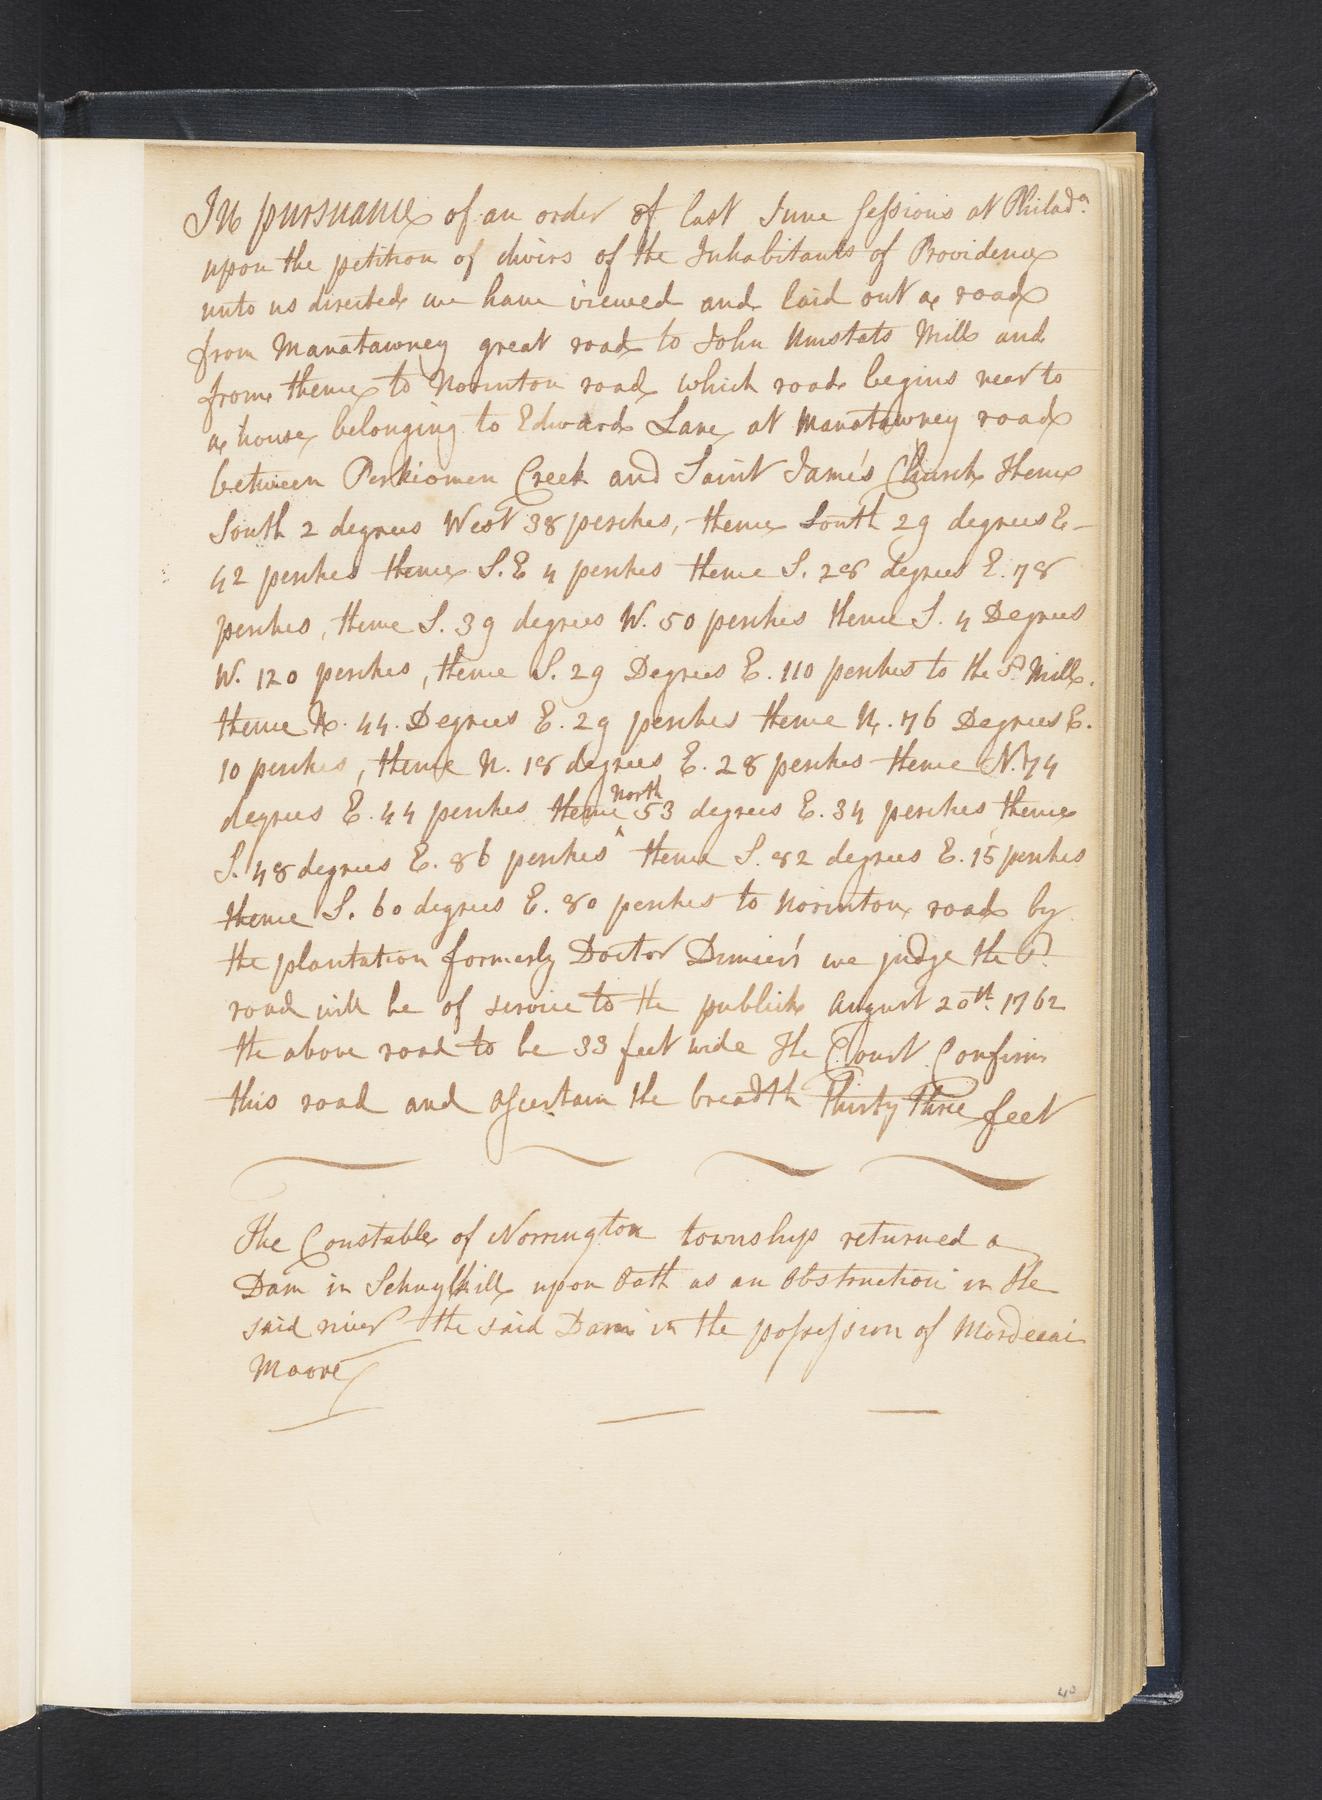 In pursuance of an order of last June sessions at Philada.
upon the petition of divers of the Inhabitants of Providence
unto us directed we have viewed and laid out a road
from Manatawney great road to John Umstats Mill and
from thence to Norinton road which road begins near to
a house belonging to Edward Lane at Manatawney road
between Perkiomen Creek and Saint James's Church Thence
South 2 degrees West 38 perches, thence South 29 degrees E-
42 perches thence S.E 4 perches thence S. 28 degrees E. 78
perches, thence S. 39 degrees W. 50 perches thence S. 4 Degrees
W. 120 perches, thence S. 29 Degrees E. 110 perches to the Sd. Mill.
thence N. 44. Degrees E. 29 perches thence N. 76 Degrees E.
10 perches, thence N. 18 degrees E. 28 perches thence N. 74
degrees E. 44 perches thence North 53 degrees E. 34 perches thence
S. 48 degrees E. 86 perches thence S. 82 degrees E. 15 perches
thence S. 60 degrees E. 80 perches to Norinton road by
the plantation formerly Doctor we judge the Sd.
road will be of service to the publick August 20th. 1762
the above road to be 33 feet wide The Court Confirm
this road and assertain the breadth Thirty three feet
The Constable of Norrington township returned a
Dam in Schuylkill upon Oath as an Obstruction in the
said river the said Dam in the possession of Mordecai
Moore
40